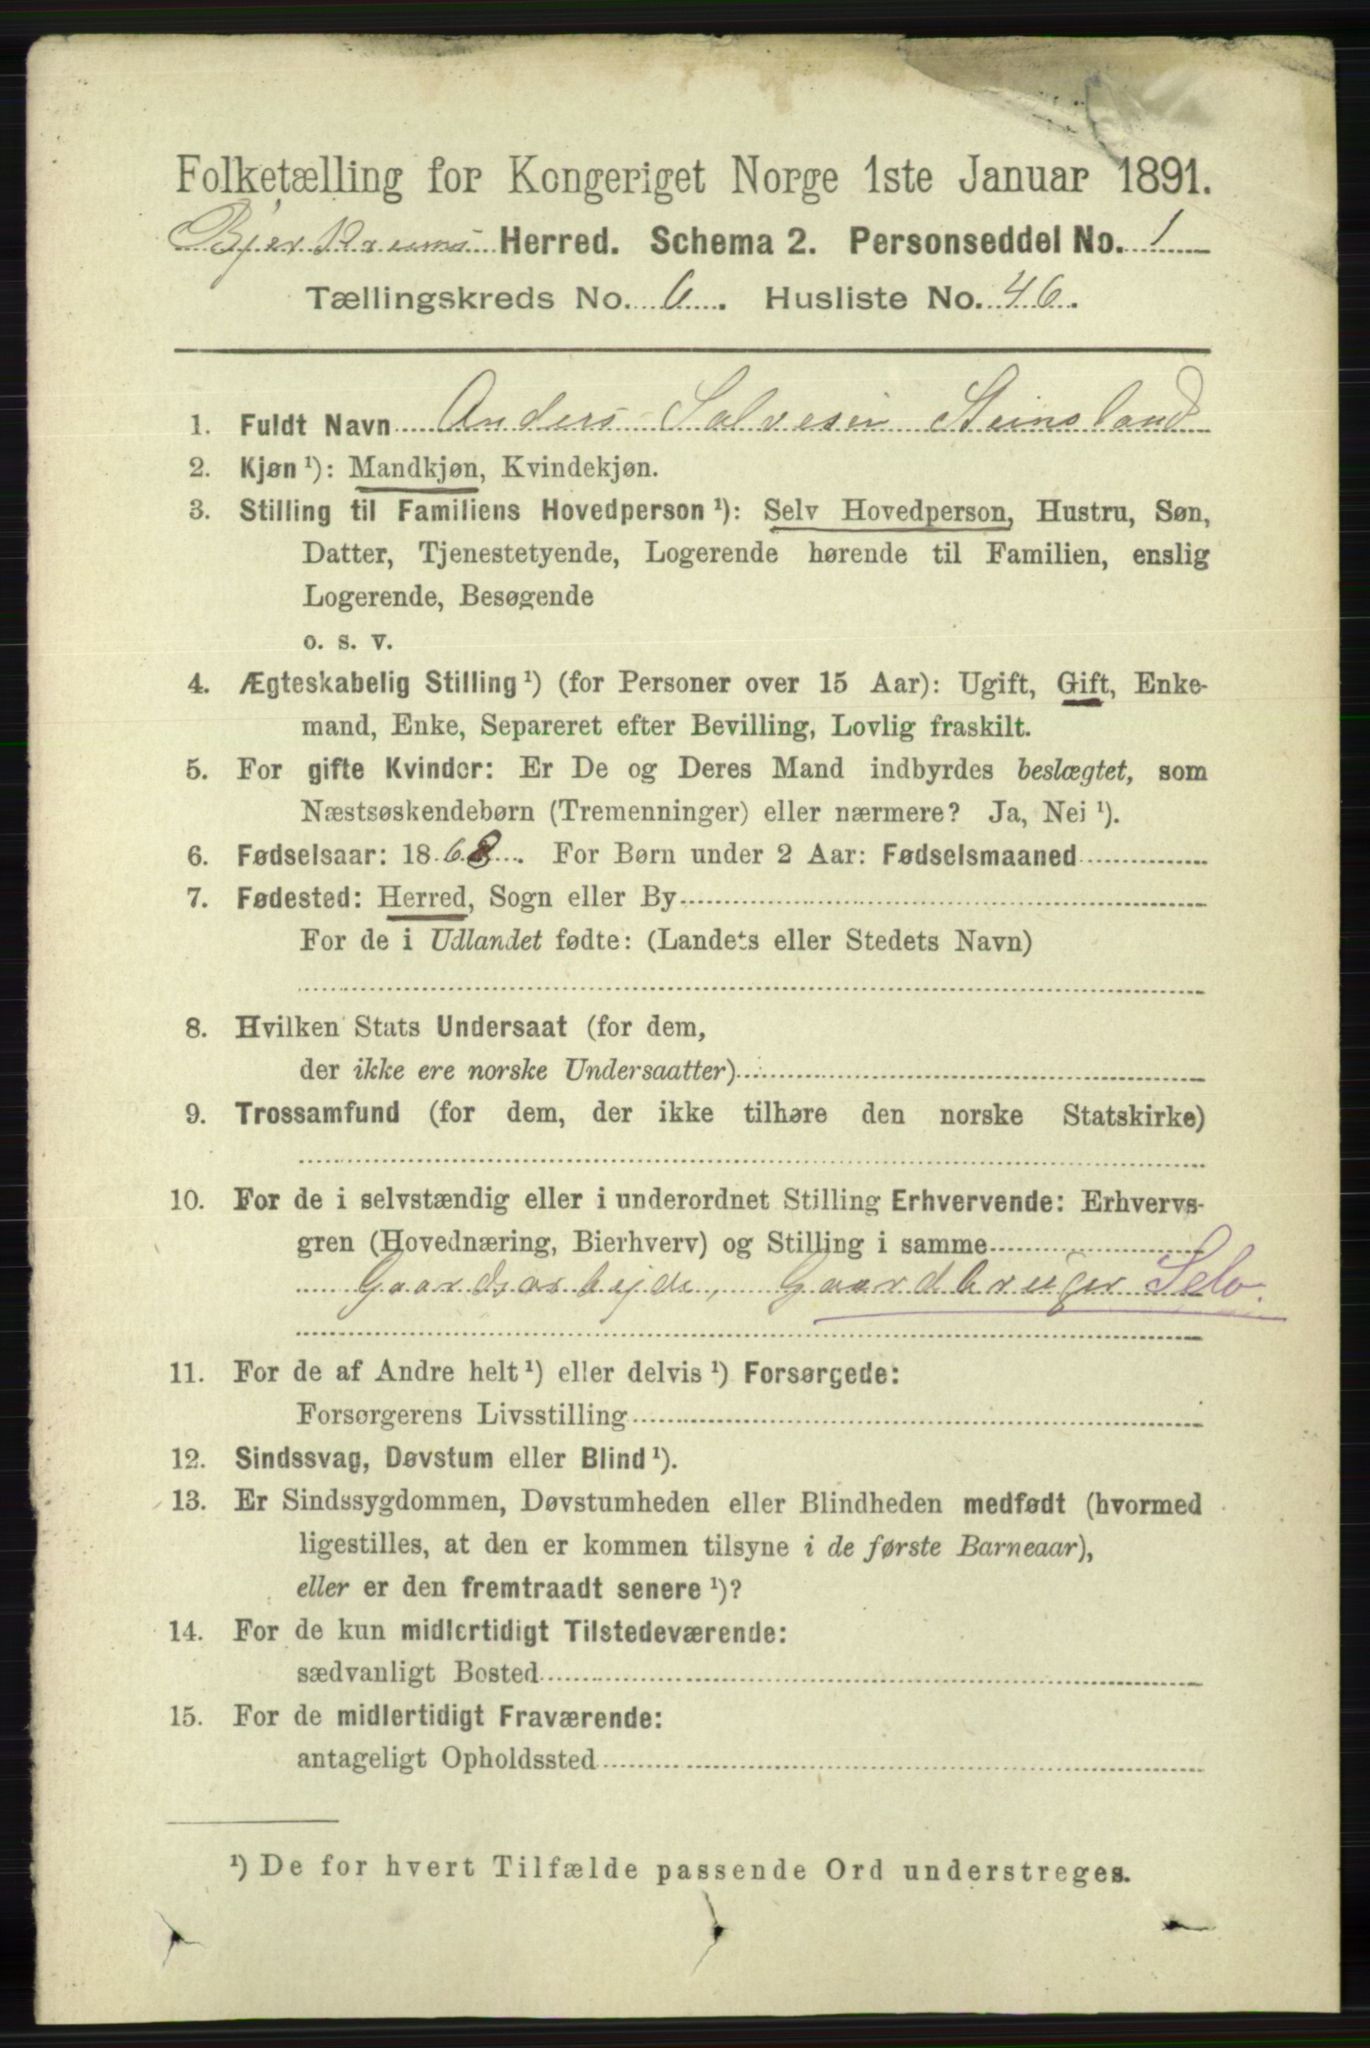 Folketælling for Kongeriget Norge 1ste Januar 1891.
Bjerkreims Herred. Schema 2. Personseddel No. 1
Tællingskreds No. 6. Husliste No. 46.
1. Fuldt Navn Anders Salvesen Steinsland
2. Kjøn ¹): Mandkjøn, Kvindekjøn.
3. Stilling til Familiens Hovedperson ¹): Selv Hovedperson, Hustru, Søn,
Datter, Tjenestetyende, Logerende hørende til Familien, enslig
Logerende, Besøgende
o. s. v.
4. Ægteskabelig Stilling ¹) (for Personer over 15 Aar): Ugift, Gift, Enke-
mand, Enke, Separeret efter Bevilling, Lovlig fraskilt.
5. For gifte Kvinder: Er De og Deres Mand indbyrdes beslægtet, som
Næstsøskendebørn (Tremenninger) eller nærmere? Ja, Nei ¹).
6. Fødselsaar: 1868. For Børn under 2 Aar: Fødselsmaaned
7. Fødested: Herred, Sogn eller By
For de i Udlandet fødte: (Landets eller Stedets Navn)
8. Hvilken Stats Undersaat (for dem,
der ikke ere norske Undersaatter)
9. Trossamfund (for dem, der ikke tilhøre den norske Statskirke)
10. For de i selvstændig eller i underordnet Stilling Erhvervende: Erhvervs-
gren (Hovednæring, Bierhverv) og Stilling i samme
Gaardsarbejde, Gaardbruger Selv.
11. For de af Andre helt ¹) eller delvis ¹) Forsørgede:
Forsørgerens Livsstilling
12. Sindssvag, Døvstum eller Blind ¹).
13. Er Sindssygdommen, Døvstumheden eller Blindheden medfødt (hvormed
ligestilles, at den er kommen tilsyne i de første Barneaar),
eller er den fremtraadt senere ¹)?
14. For de kun midlertidigt Tilstedeværende:
sædvanligt Bosted
15. For de midlertidigt Fraværende:
antageligt Opholdssted
¹) De for hvert Tilfælde passende Ord understreges.